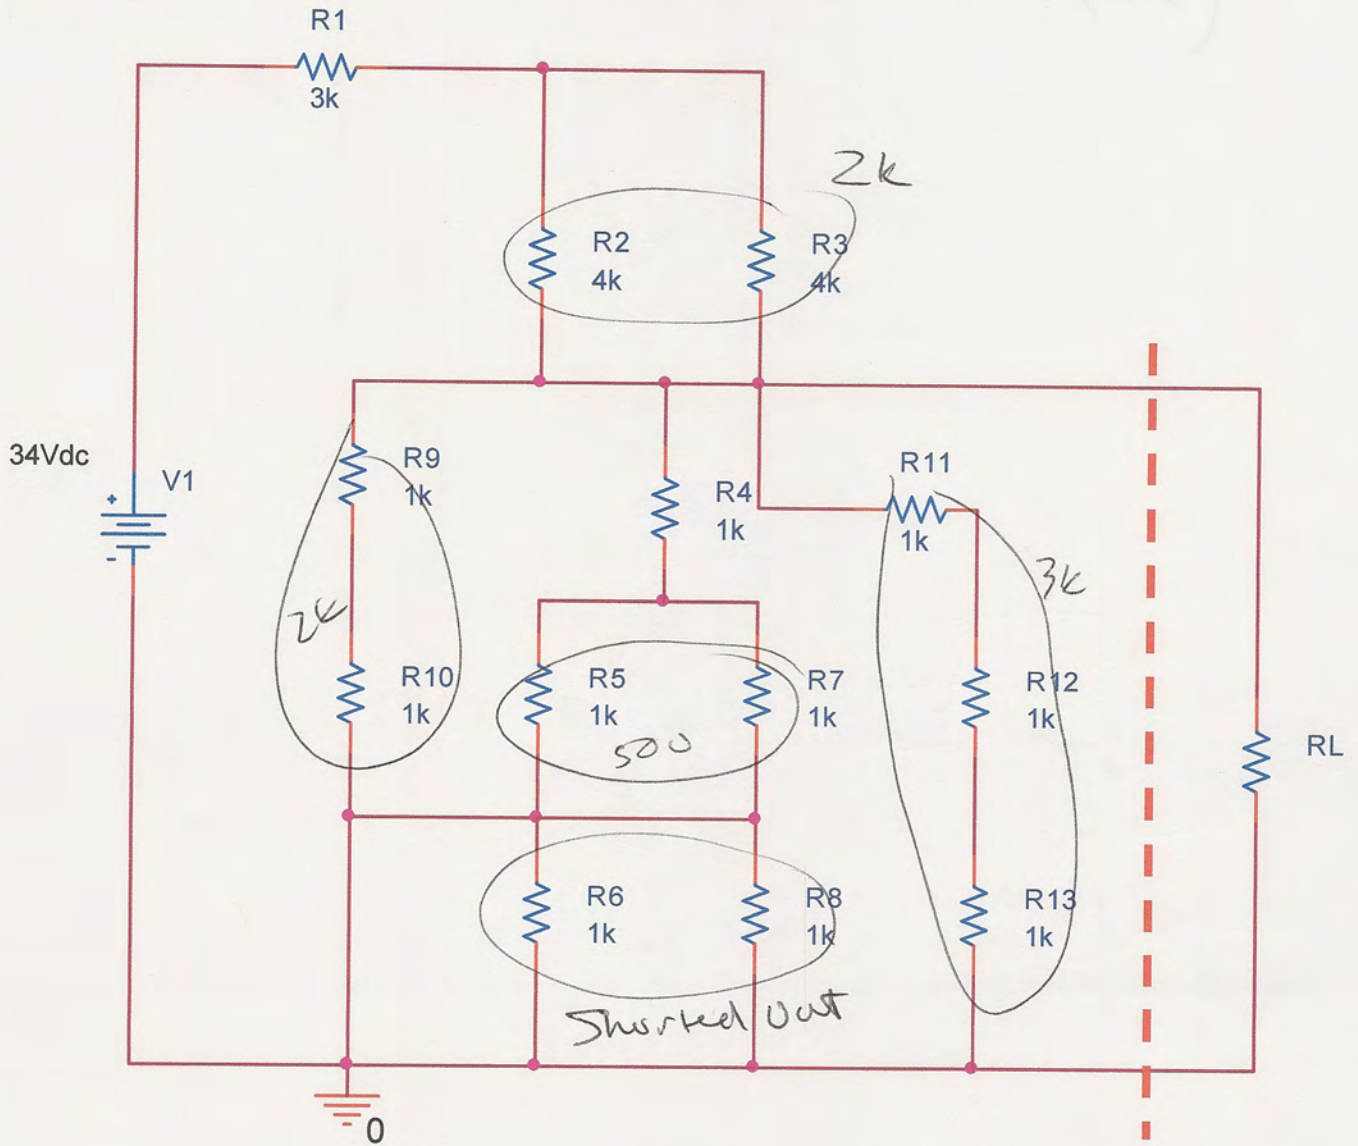 R1
3k
2k
R2
4k
R3
4k
34Vdc
V1
+
-
R9
1k
R4
1k
R11
1k
3k
2k
R10
1k
R5
1k
R7
1k
500
R12
1k
RL
R6
1k
R8
1k
R13
1k
Shorted out
0